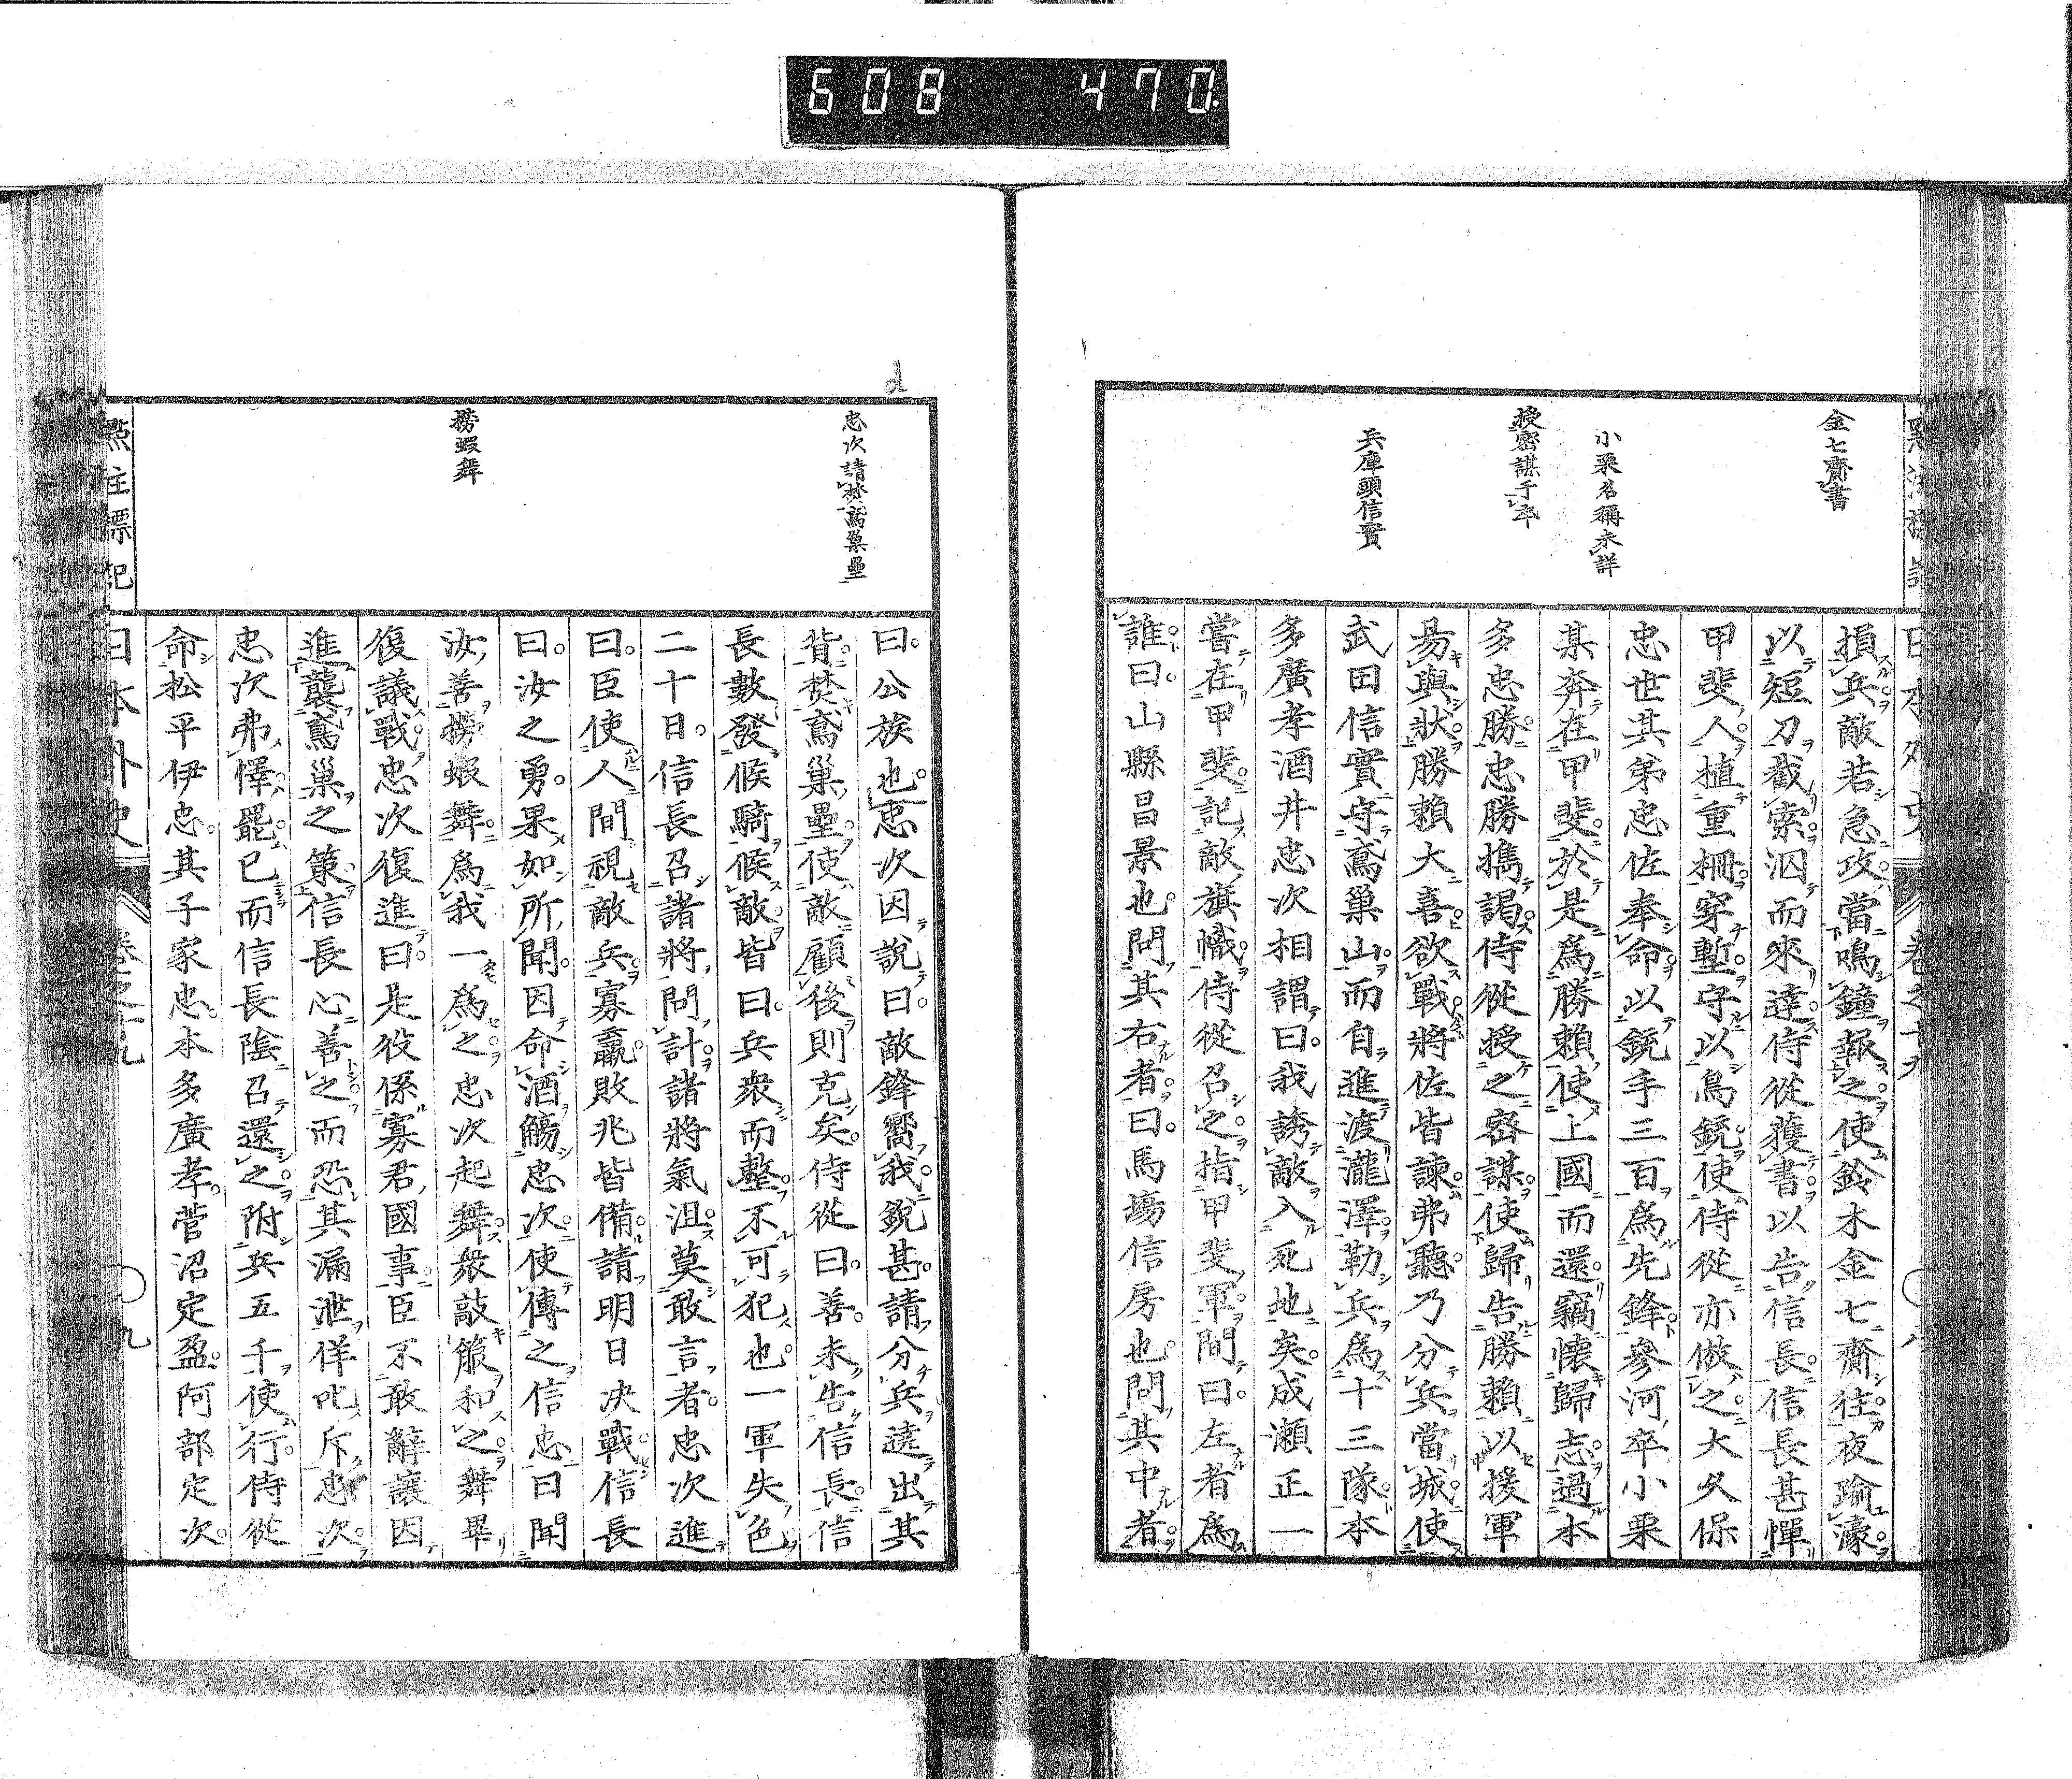 608 470
點注標記
日本外史
卷之十九
八
金七齋書
小栗名稱未詳
授密謀于卒
兵庫頭信實
損兵敵若急攻當鳴鐘報之使鈴木金七齋往夜踰濠
以短刀截索泅而來達侍從獲書以告信長信長甚憚
甲斐人植重柵穿塹守以鳥銃使侍從亦倣之大久保
忠世其弟忠佐奉命以銃手三百爲先鋒參河卒小栗
某奔在甲斐於是爲勝賴使上國而還竊懷歸志過本
多忠勝忠勝攜謁侍從授之密謀使歸告勝賴以援軍
易與狀勝賴大喜欲戰將佐皆諫弗聽乃分兵當城使
武田信實守鳶巢山而自進渡瀧澤勒兵爲十三隊本
多廣孝酒井忠次相謂曰我誘敵入死地矣成瀬正一
嘗在甲斐記敵旗幟侍從召之指甲斐軍間曰左者爲
誰曰山縣昌景也問其右者曰馬場信房也問其中者
忠次請焚鳶巢壘
撈蝦舞
曰公族也忠次因說曰敵鋒嚮我銳甚請分兵遶出其
背焚鳶巢壘使敵顧後則克矣侍從曰善未告信長信
長數發候騎候敵皆曰兵衆而整不可犯也一軍失色
二十日信長召諸將問計諸將氣沮莫敢言者忠次進
曰臣使人間視敵兵寡羸敗兆皆備請明日决戰信長
曰汝之勇果如所聞因命酒觴忠次使傳之信忠曰聞
汝善撈蝦舞爲我一爲之忠次起舞衆敲箙和之舞畢
復議戰忠次復進曰是役係寡君國事臣不敢辭讓因
進襲鳶巢之策信長心善之而恐其漏泄佯叱斥忠次
忠次弗懌罷已而信長陰召還之附兵五千使行侍從
命松平伊忠其子家忠本多廣孝菅沼定盈阿部定次
點注標記
日本外史
卷之十九
九